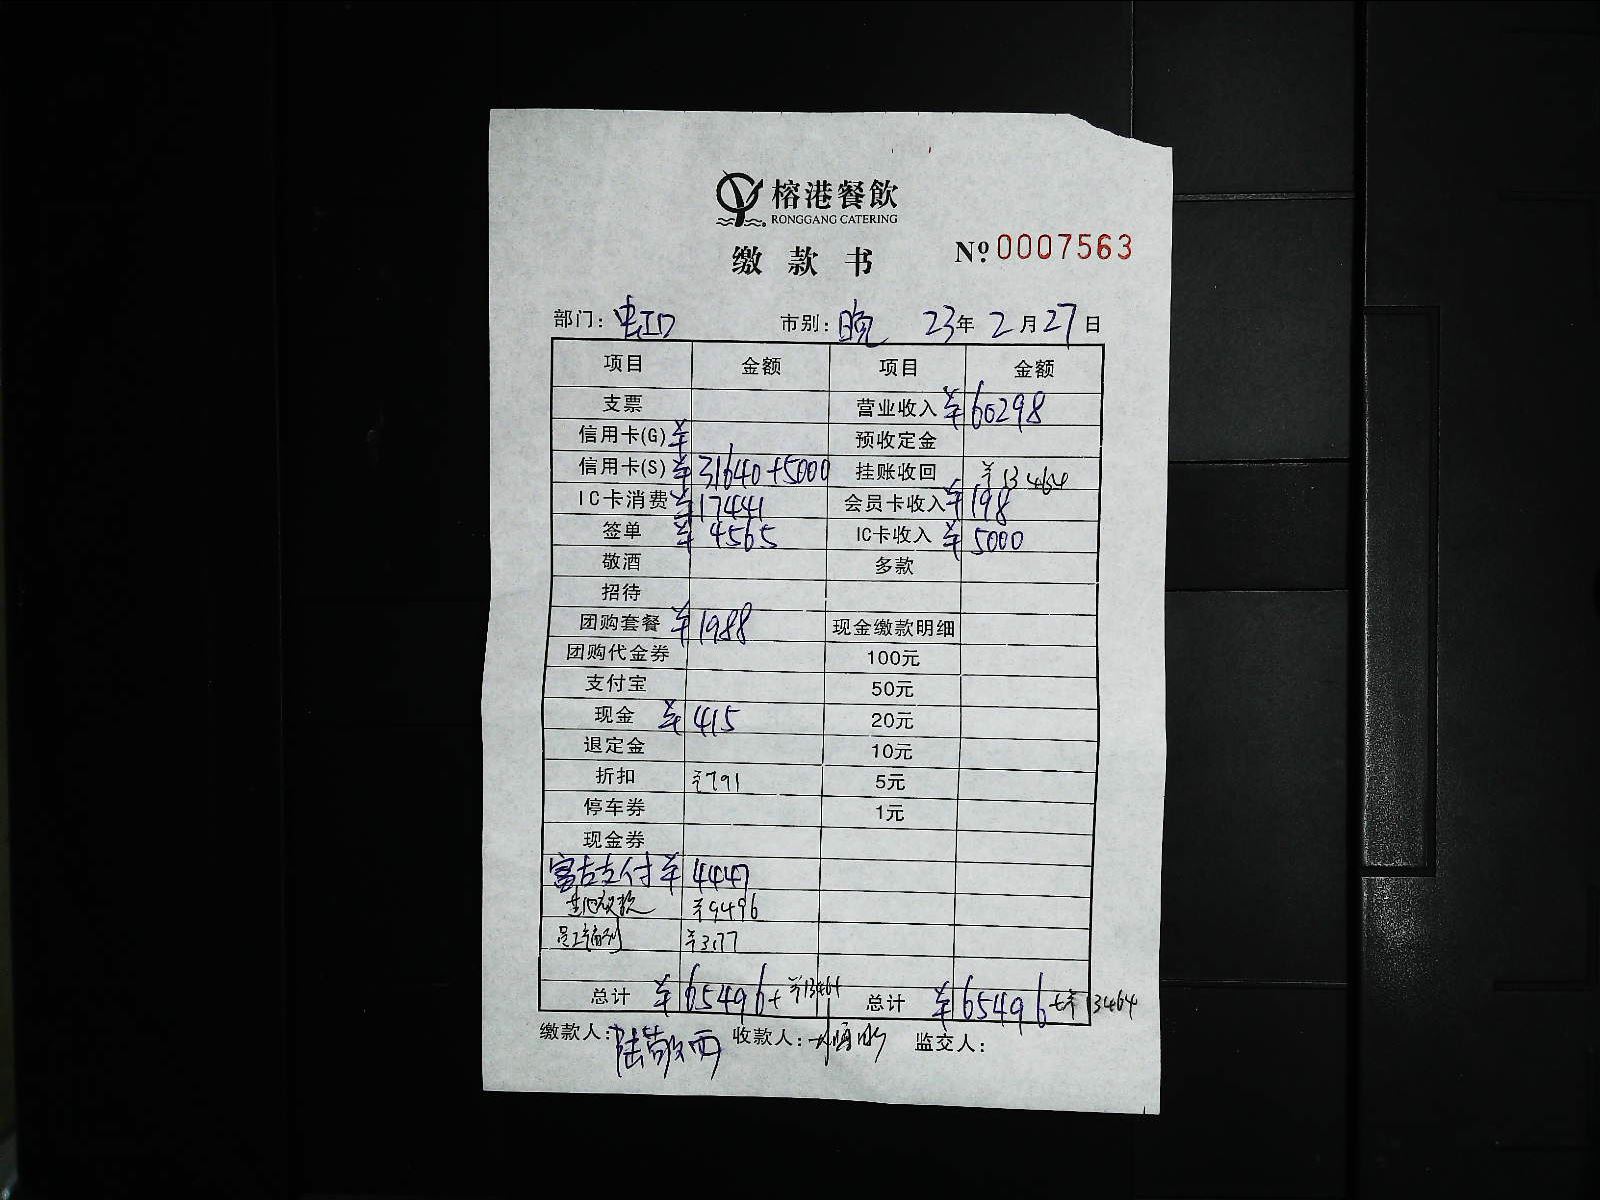 榕港餐飲
RONGGANG CATERING
缴款书 Nº 0007563
部门: 虹口 市别: 晚 23年2月27日
项目 金额 项目 金额
支票 营业收入 ¥60298
信用卡(G) ¥ 预收定金
信用卡(S) ¥31640+5000 挂账收回 ¥13464
IC卡消费 ¥17441 会员卡收入 ¥198
签单 ¥4565 IC卡收入 ¥5000
敬酒 多款
招待
团购套餐 ¥1988 现金缴款明细
团购代金券 100元
支付宝 50元
现金 ¥415 20元
退定金 10元
折扣 ¥791 5元
停车券 1元
现金券
富友支付 ¥4447
¥9496
¥3177
总计 ¥65496+¥13464 总计 ¥65496+¥13464
缴款人: 陆敬西 收款人: 监交人: